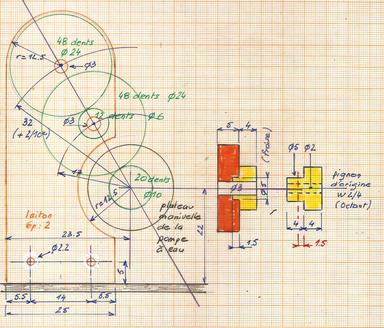 48 dents
Ø24
r=12.5
Ø3
48 dents Ø24
Ø3
12 dents Ø6
32
(+2/10e)
20 dents
Ø10
r=12.5
plateau
manivelle
de la
pompe
à eau
laiton
Ep: 2
23.5
Ø2.2
5
22
5.5 14 5.5
25
5 4
(Fraise)
Ø3
1.5
Ø5 Ø2
4 4
1.5
pignon
d'origine
W 2/4
(Octant)